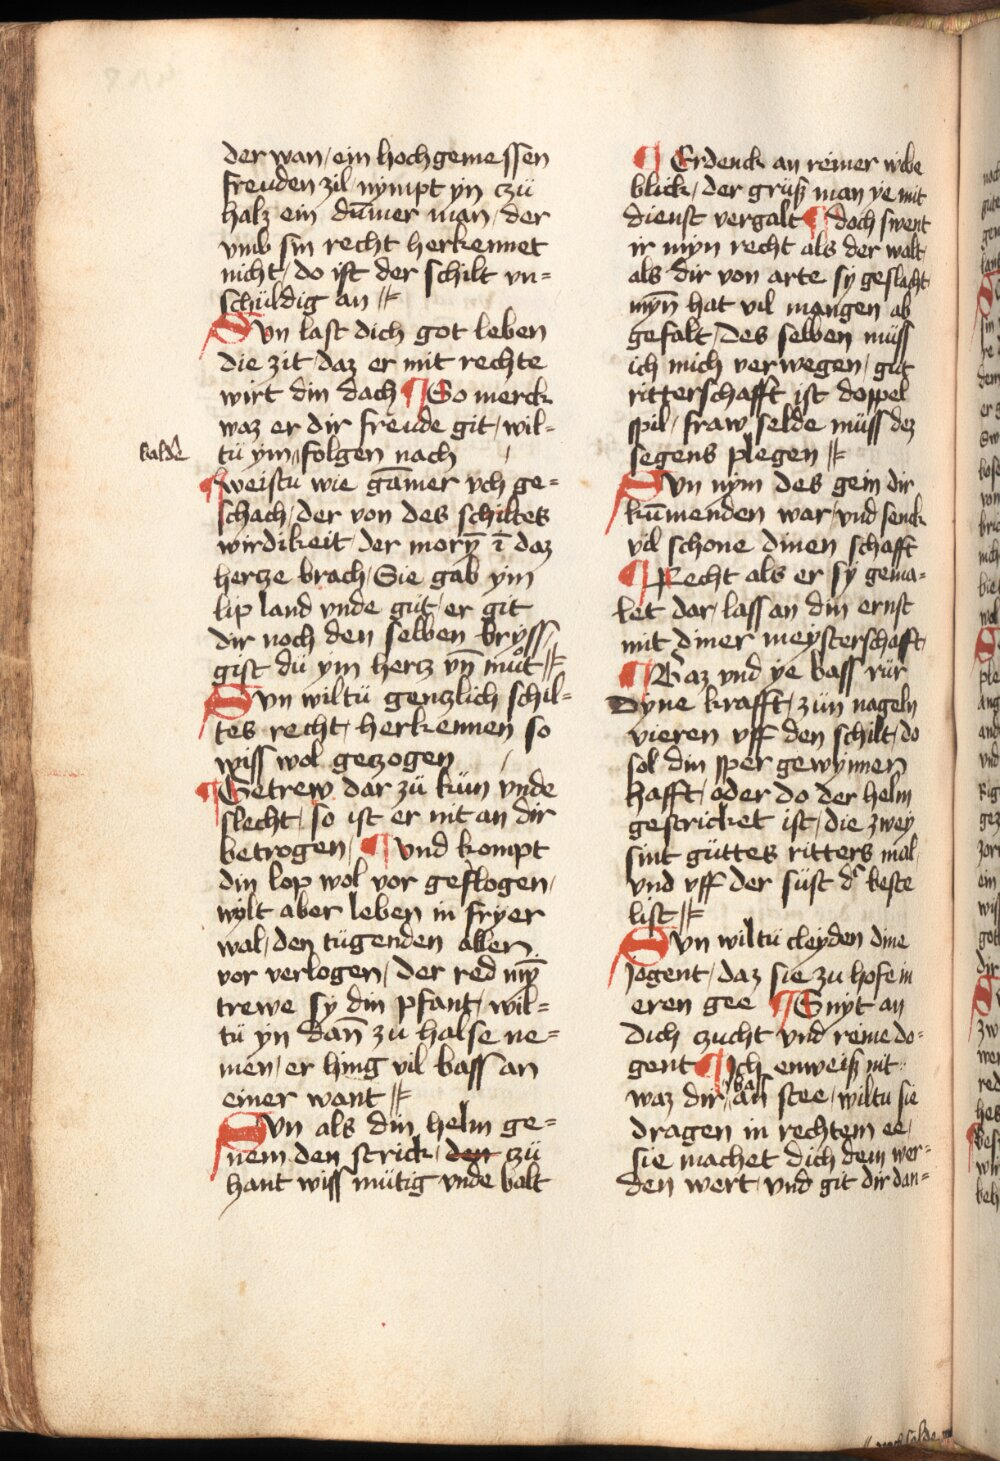 der wan / ein hochgemessen
freuden zil / nÿmpt ÿn czü
halz ein dum̄er man / der
vmb sin recht herkennet
nicht / do ist der schilt vn=
schüldig an
Svn last dich got leben
die zit / daz er mit rechte
wirt din dach ¶ So merck
waz er dir freude git / wil=
tü ÿm / folgen nach
balde
¶ weistu wie gam̄er vch ge=
schach / der von des schiltes
wirdikeit / der morÿ̄ ī daz
hertze brach / Sie gab ÿm
lip land vnde gut / er git
dir noch den selben brÿss /
gist dü ÿm hertz vn̄ muͦt
Svn wiltü gentzlich schil=
tes recht / herkennen so
wiss wol getzogen
¶ Getrew dar zü kün vnde
slecht / so ist er nit an dir
betrogen / ¶ vnd kompt
din lop wol vor geflogen /
wÿlt aber leben in frÿer
wal / den tügenden allen
vor verlogen / der red mÿ̄
trewe sÿ din pfant / wil=
tü ÿn dan̄ zu halse ne=
men / er hing vil bass an
einer want
Svn als din helm ge=
nem den strick / den czü
hant wiss mütig vnde balt
¶ Erdenck an reiner wibe
blick / der grüß man ye mit
dienst vergalt ¶ doch swent
ir mÿn recht als der walt
als dir von arte sÿ geslacht
mÿn̄ hat vil mangen ab
gefalt / des selben müss
ich mich verwegen / gut
ritterschafft ist doppel
spil / fraw selde müss dez
segens plegen
Svn nÿm des gein dir
kum̄enden war / vnd senck
vil schone dinen schafft
¶ Recht als er sÿ gema=
let dar / lass an din ernst
mit diner meÿsterschafft
¶ Baz vnd ÿe bass rür
dÿne krafft / zün nageln
vieren vff den schilt / do
sol din sper gewÿnnen
hafft / oder do der helm
gestricket ist / die zweÿ
sint güttes ritters mal
vnd vff der süst dʼ beste
list
Svn wiltü cleÿden dine
jogent / daz sie zu hofe in
eren gee ¶ Snÿt an
dich czucht vnd reine do=
gent ¶ Ich enweiß nit
waz dir / bass an stee / wiltu sie
dragen in rechtem ee /
sie machet dich dem wer=
den wert / vnd git dir dan=